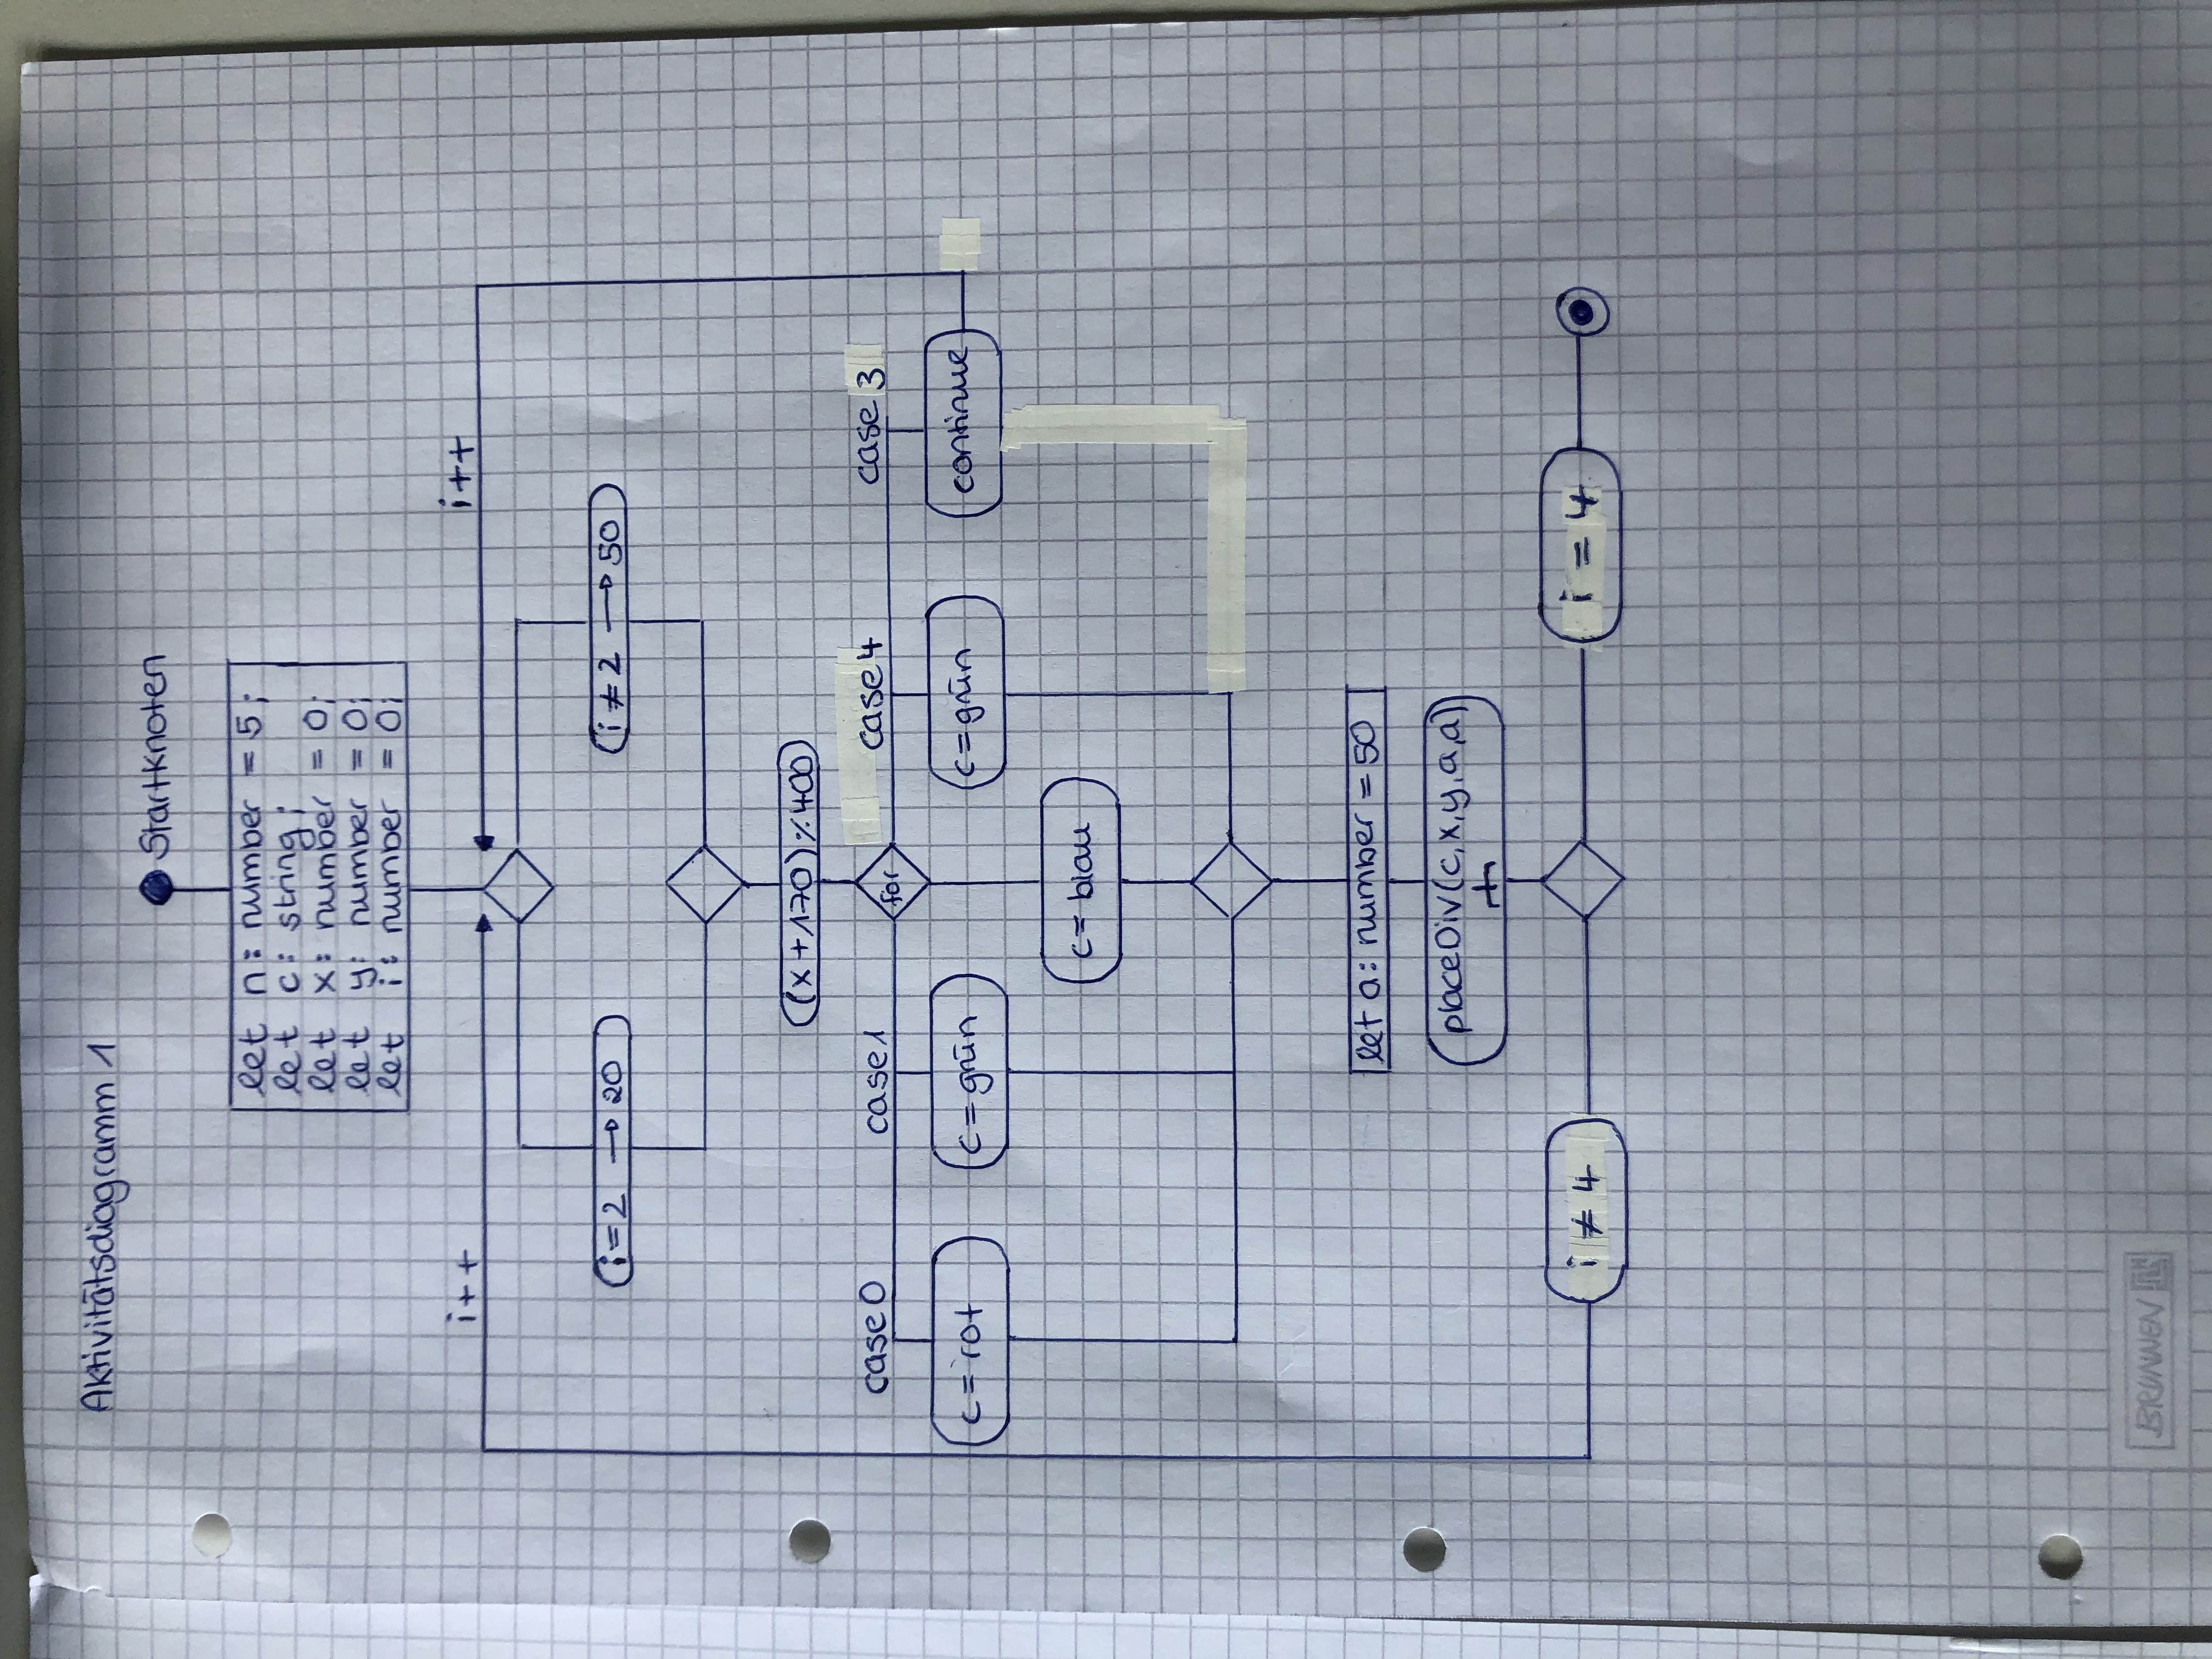 Aktivitätsdiagramm 1
Startknoten
let n: number = 5;
let c: string;
let x: number = 0;
let y: number = 0;
let i: number = 0;
i++ i++
i = 2 → 20 i ≠ 2 → 50
(x+170)%400
case 0 case 1 for case 4 case 3
c = rot c = grün c = grün continue
c = blau
let a: number = 50
placeDiv(c,x,y,a,a)
i ≠ 4 i = 4
BRUNNEN